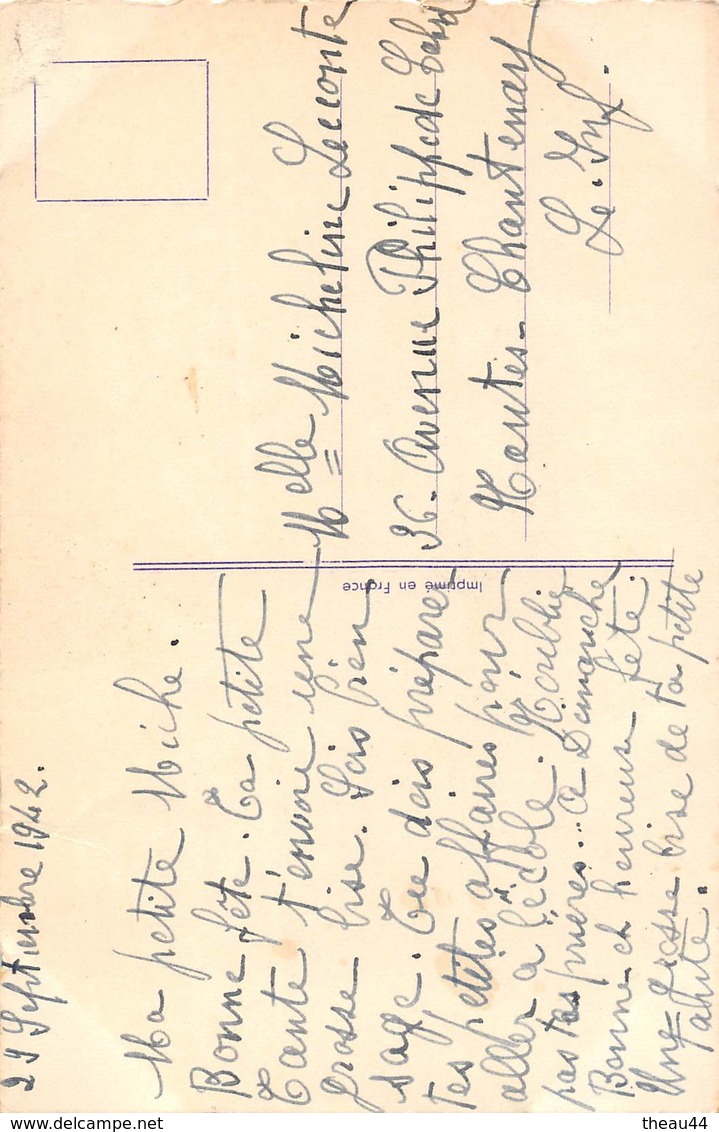 29 Septembre 1942.
Ma petite Miche.
Bonne fête. Ta petite
Tante t'envoie une
grosse bise. Sois bien
sage. Tu dois préparer
tes petites affaires pour
aller à l'école. N'oublie
pas tes prières.. à Dimanche
Bonne et heureuse fête.
Une grosse bise de ta petite
Tante.
Imprimé en France
Melle Micheline Lecomte
36. Avenue Philippe de
Nantes-Chantenay
Le. Inf.
theau44